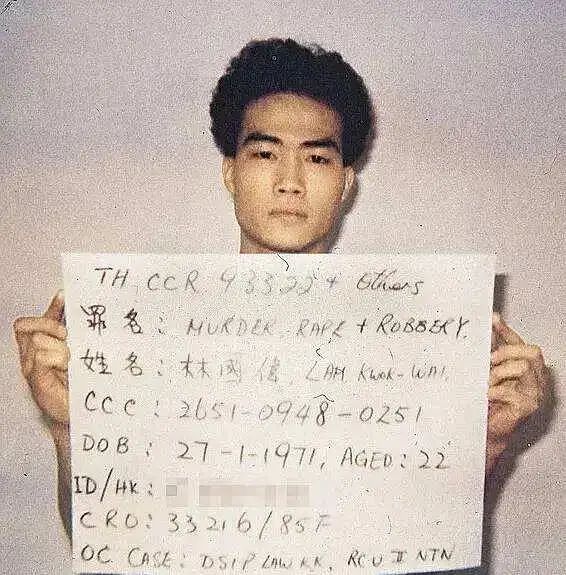 TH CCR 93322 + Others
罪名: MURDER, RAPE + ROBBERY.
姓名: 林國偉, LAM KWOK-WAI.
CCC: 2651-0948-0251
DOB: 27-1-1971, AGED: 22
ID/HK:
CRO: 33216/85F
OC CASE: DSIP LAW K.K, RCU II NTN